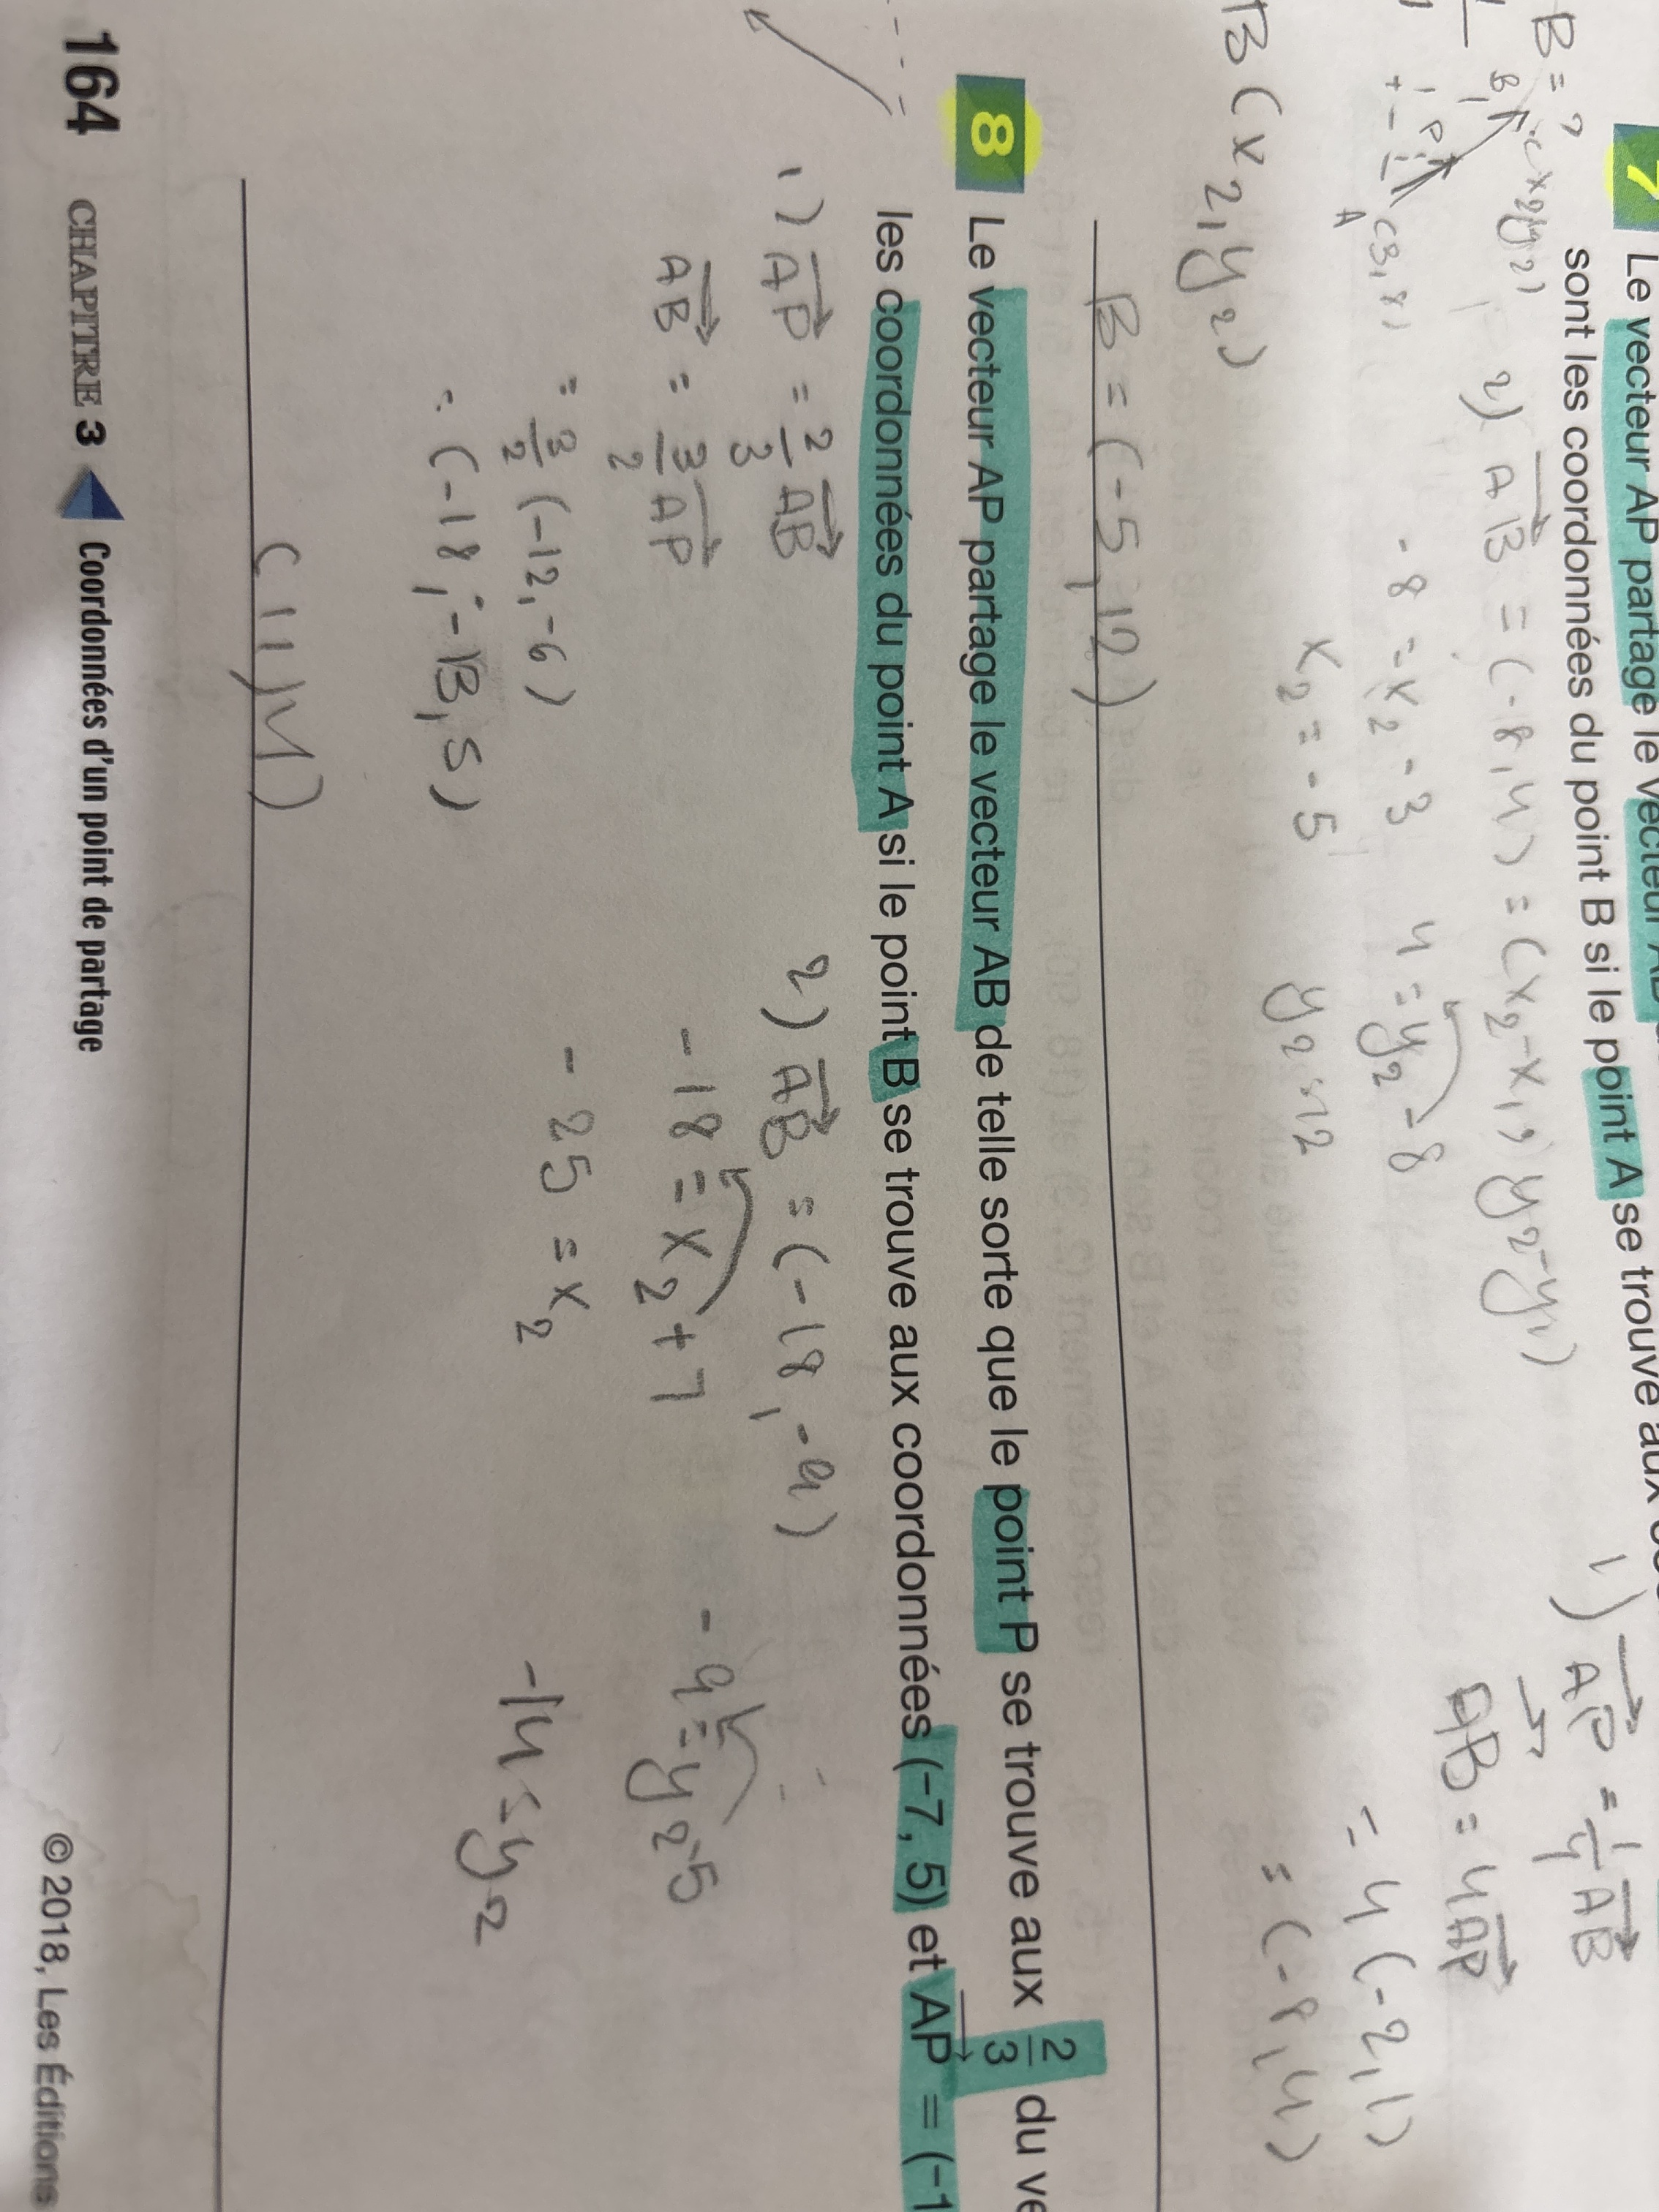 7 Le vecteur AP partage le vecteur
sont les coordonnées du point B si le point A se trouve aux
B = ?
(x2, y2)
B
P
A (3, 8)
B(x2, y2)
2) AB = (-8, 4) = (x2 - x1, y2 - y1)
-8 = x2 - 3    4 = y2 - 8
x2 = -5    y2 = 12
1) AP = 1/4 AB
AB = 4AP
= 4(-2, 1)
= (-8, 4)
B = (-5, 12)
8 Le vecteur AP partage le vecteur AB de telle sorte que le point P se trouve aux 2/3 du ve
les coordonnées du point A si le point B se trouve aux coordonnées (-7, 5) et AP = (-1
1) AP = 2/3 AB
AB = 3/2 AP
= 3/2 (-12, -6)
2) AB = (-18, -9)
-18 = x2 + 7    -9 = y2 - 5
-25 = x2    -14 = y2
(11, 14)
164 CHAPITRE 3 Coordonnées d'un point de partage
© 2018, Les Éditions